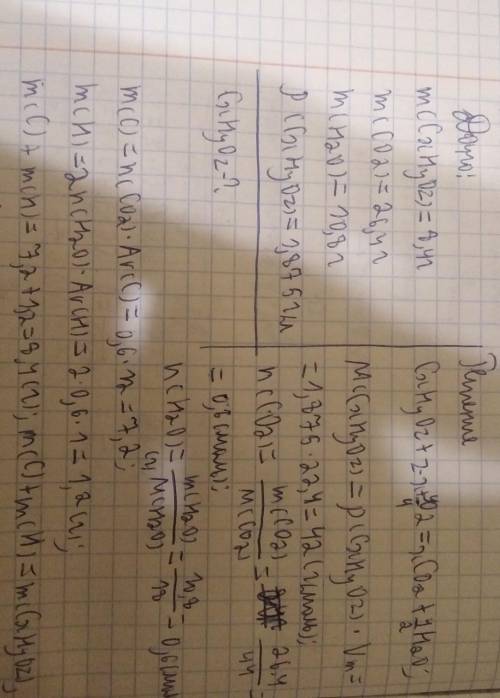 Дано:
m(CxHyOz) = 8,4г
m(CO2) = 26,4г
m(H2O) = 10,8г
ρ(CxHyOz) = 1,875г/л
CxHyOz-?
Решение
= nCO2 + y/2 H2O;
M(CxHyOz) = ρ(CxHyOz) · Vm =
= 1,875 · 22,4 = 42(г/моль);
n(CO2) = m(CO2)/M(CO2) = 26.4/44 =
n(H2O) = m(H2O)/M(H2O) = 10,8/18 = 0,6
m(C) = n(CO2) · Ar(C) = 0,6 · 12 = 7,2;
m(H) = 2n(H2O) · Ar(H) = 2 · 0,6 · 1 = 1,2(г);
m(C) + m(H) = 7,2 + 1,2 = 8,4(г); m(C) + m(H) = m(CxHyOz),